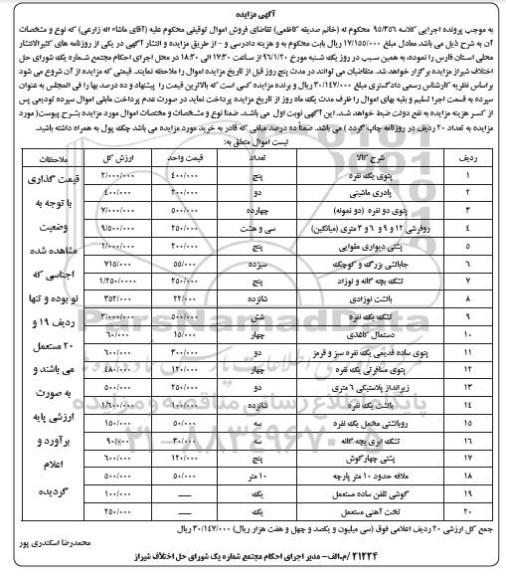 آگهی مزایده
به موجب پرونده اجرایی کلاسه ۹۵/۳۵۶ محکوم له (خانم صدیقه کاظمی) تقاضای فروش اموال توقیفی محکوم علیه (آقای ماشاء اله زارعی) که نوع و مشخصات
آن به شرح ذیل می باشد معادل مبلغ ۱۷/۱۵۵/۰۰۰ ریال بابت محکوم به و هزینه دادرسی و - از طریق مزایده و انتشار آگهی در یکی از روزنامه های کثیرالانتشار
محلی استان فارس را نموده، به همین سبب در روز یک شنبه مورخ ۹۶/۱/۲۰ از ساعت ۱۷:۳۰ الی ۱۸:۳۰ در محل اجرای احکام مجتمع شماره یک شورای حل
اختلاف شیراز مزایده برگزار خواهد شد. متقاضیان می توانند در مدت پنج روز قبل از تاریخ مزایده اموال را ملاحظه نمایند. قیمتی که مزایده از آن شروع می شود
براساس نظریه کارشناس رسمی دادگستری مبلغ ۳۰/۱۴۷/۰۰۰ ریال و برنده مزایده کسی است که بالاترین قیمت را پیشنهاد و ده درصد بها را فی المجلس به عنوان
سپرده به قسمت اجرا تسلیم و بقیه بهای اموال را ظرف مدت یک ماه روز از تاریخ مزایده پرداخت نماید در صورت عدم پرداخت مابقی اموال سپرده تودیعی پس
از کسر هزینه مزایده به نفع دولت ضبط خواهد شد. این آگهی نوبت اول می باشد. ضمناً نوع و مشخصات و مختصات اموال مورد مزایده بشرح پیوست(مورد
مزایده به تعداد ۲۰ ردیف در روزنامه چاپ گردد ) می باشد. ضمناً ده درصد مبلغی که قادر به خرید مورد مزایده می باشد چک پول به همراه داشته باشید.
لیست اموال متعلق به:
ردیف شرح کالا تعداد قیمت واحد ارزش کل ملاحظات
۱ پتوی یک نفره پنج ۴۰۰/۰۰۰ ۲/۰۰۰/۰۰۰
۲ پادری ماشینی دو ۲۰۰/۰۰۰ ۴۰۰/۰۰۰
۳ پتوی دو نفره (دو نمونه) چهارده ۵۰۰/۰۰۰ ۷/۰۰۰/۰۰۰
۴ روفرشی ۱۲ و ۹ و ۶ و ۳ متری (میانگین) سی و هشت ۲۵۰/۰۰۰ ۹/۵۰۰/۰۰۰
۵ پشتی دیواری مقوایی پنج ۲۰۰/۰۰۰ ۱/۰۰۰/۰۰۰
۶ جابالشی بزرگ و کوچک سیزده ۵۵/۰۰۰ ۷۱۵/۰۰۰
۷ تشک بچه گانه و نوزاد پنج ۲۵۰/۰۰۰ ۱/۲۵۰/۰۰۰۰
۸ بالشت نوزادی شانزده ۲۲/۰۰۰ ۳۵۲/۰۰۰
۹ تشک یک نفره شش ۵۰۰/۰۰۰ ۳/۰۰۰/۰۰۰
۱۰ دستمال کاغذی چهار ۱۵/۰۰۰ ۶۰/۰۰۰
۱۱ پتوی ساده قدیمی یک نفره سبز و قرمز دو ۳۰۰/۰۰۰ ۶۰۰/۰۰۰
۱۲ پتوی مسافرتی یک نفره چهار ۱۲۰/۰۰۰ ۴۸۰/۰۰۰
۱۳ زیرانداز پلاستیکی ۶ متری دو ۲۵۰/۰۰۰ ۵۰۰/۰۰۰
۱۴ بالشت یک نفره شانزده ۱۰۰/۰۰۰ ۱/۶۰۰/۰۰۰
۱۵ روبالشتی مخمل یک نفره سه ۵۰/۰۰۰ ۱۵۰/۰۰۰
۱۶ تشک ابری بچه گانه سه ۳۰/۰۰۰ ۹۰/۰۰۰
۱۷ پشتی چهارگوش پنج ۱۲۰/۰۰۰ ۶۰۰/۰۰۰
۱۸ ملافه حدود ۱۰ متر پارچه ۱۰ متر ۵۰/۰۰۰ ۵۰۰/۰۰۰
۱۹ گوشی تلفن ساده مستعمل یک — ۱۰۰/۰۰۰
۲۰ تخت آهنی مستعمل یک — ۲۵۰/۰۰۰
قیمت گذاری
با توجه به
وضعیت
مشاهده شده
اجناسی که
نو بوده و تنها
ردیف ۱۹ و
۲۰ مستعمل
می باشند و
به صورت
ارزشی پایه
برآورد و
اعلام
گردیده
جمع کل ارزشی ۲۰ ردیف اعلامی فوق (سی میلیون و یکصد و چهل و هفت هزار ریال) ۳۰/۱۴۷/۰۰۰ ریال
محمدرضا اسکندری پور
۲۱۲۲۴/م.الف- مدیر اجرای احکام مجتمع شماره یک شورای حل اختلاف شیراز
ParsNamadData
۰۲۱-۸۸۳۴۹۶۷۰-۵